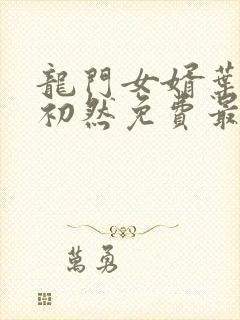 龍門女婿葉
初然免費最
萬勇